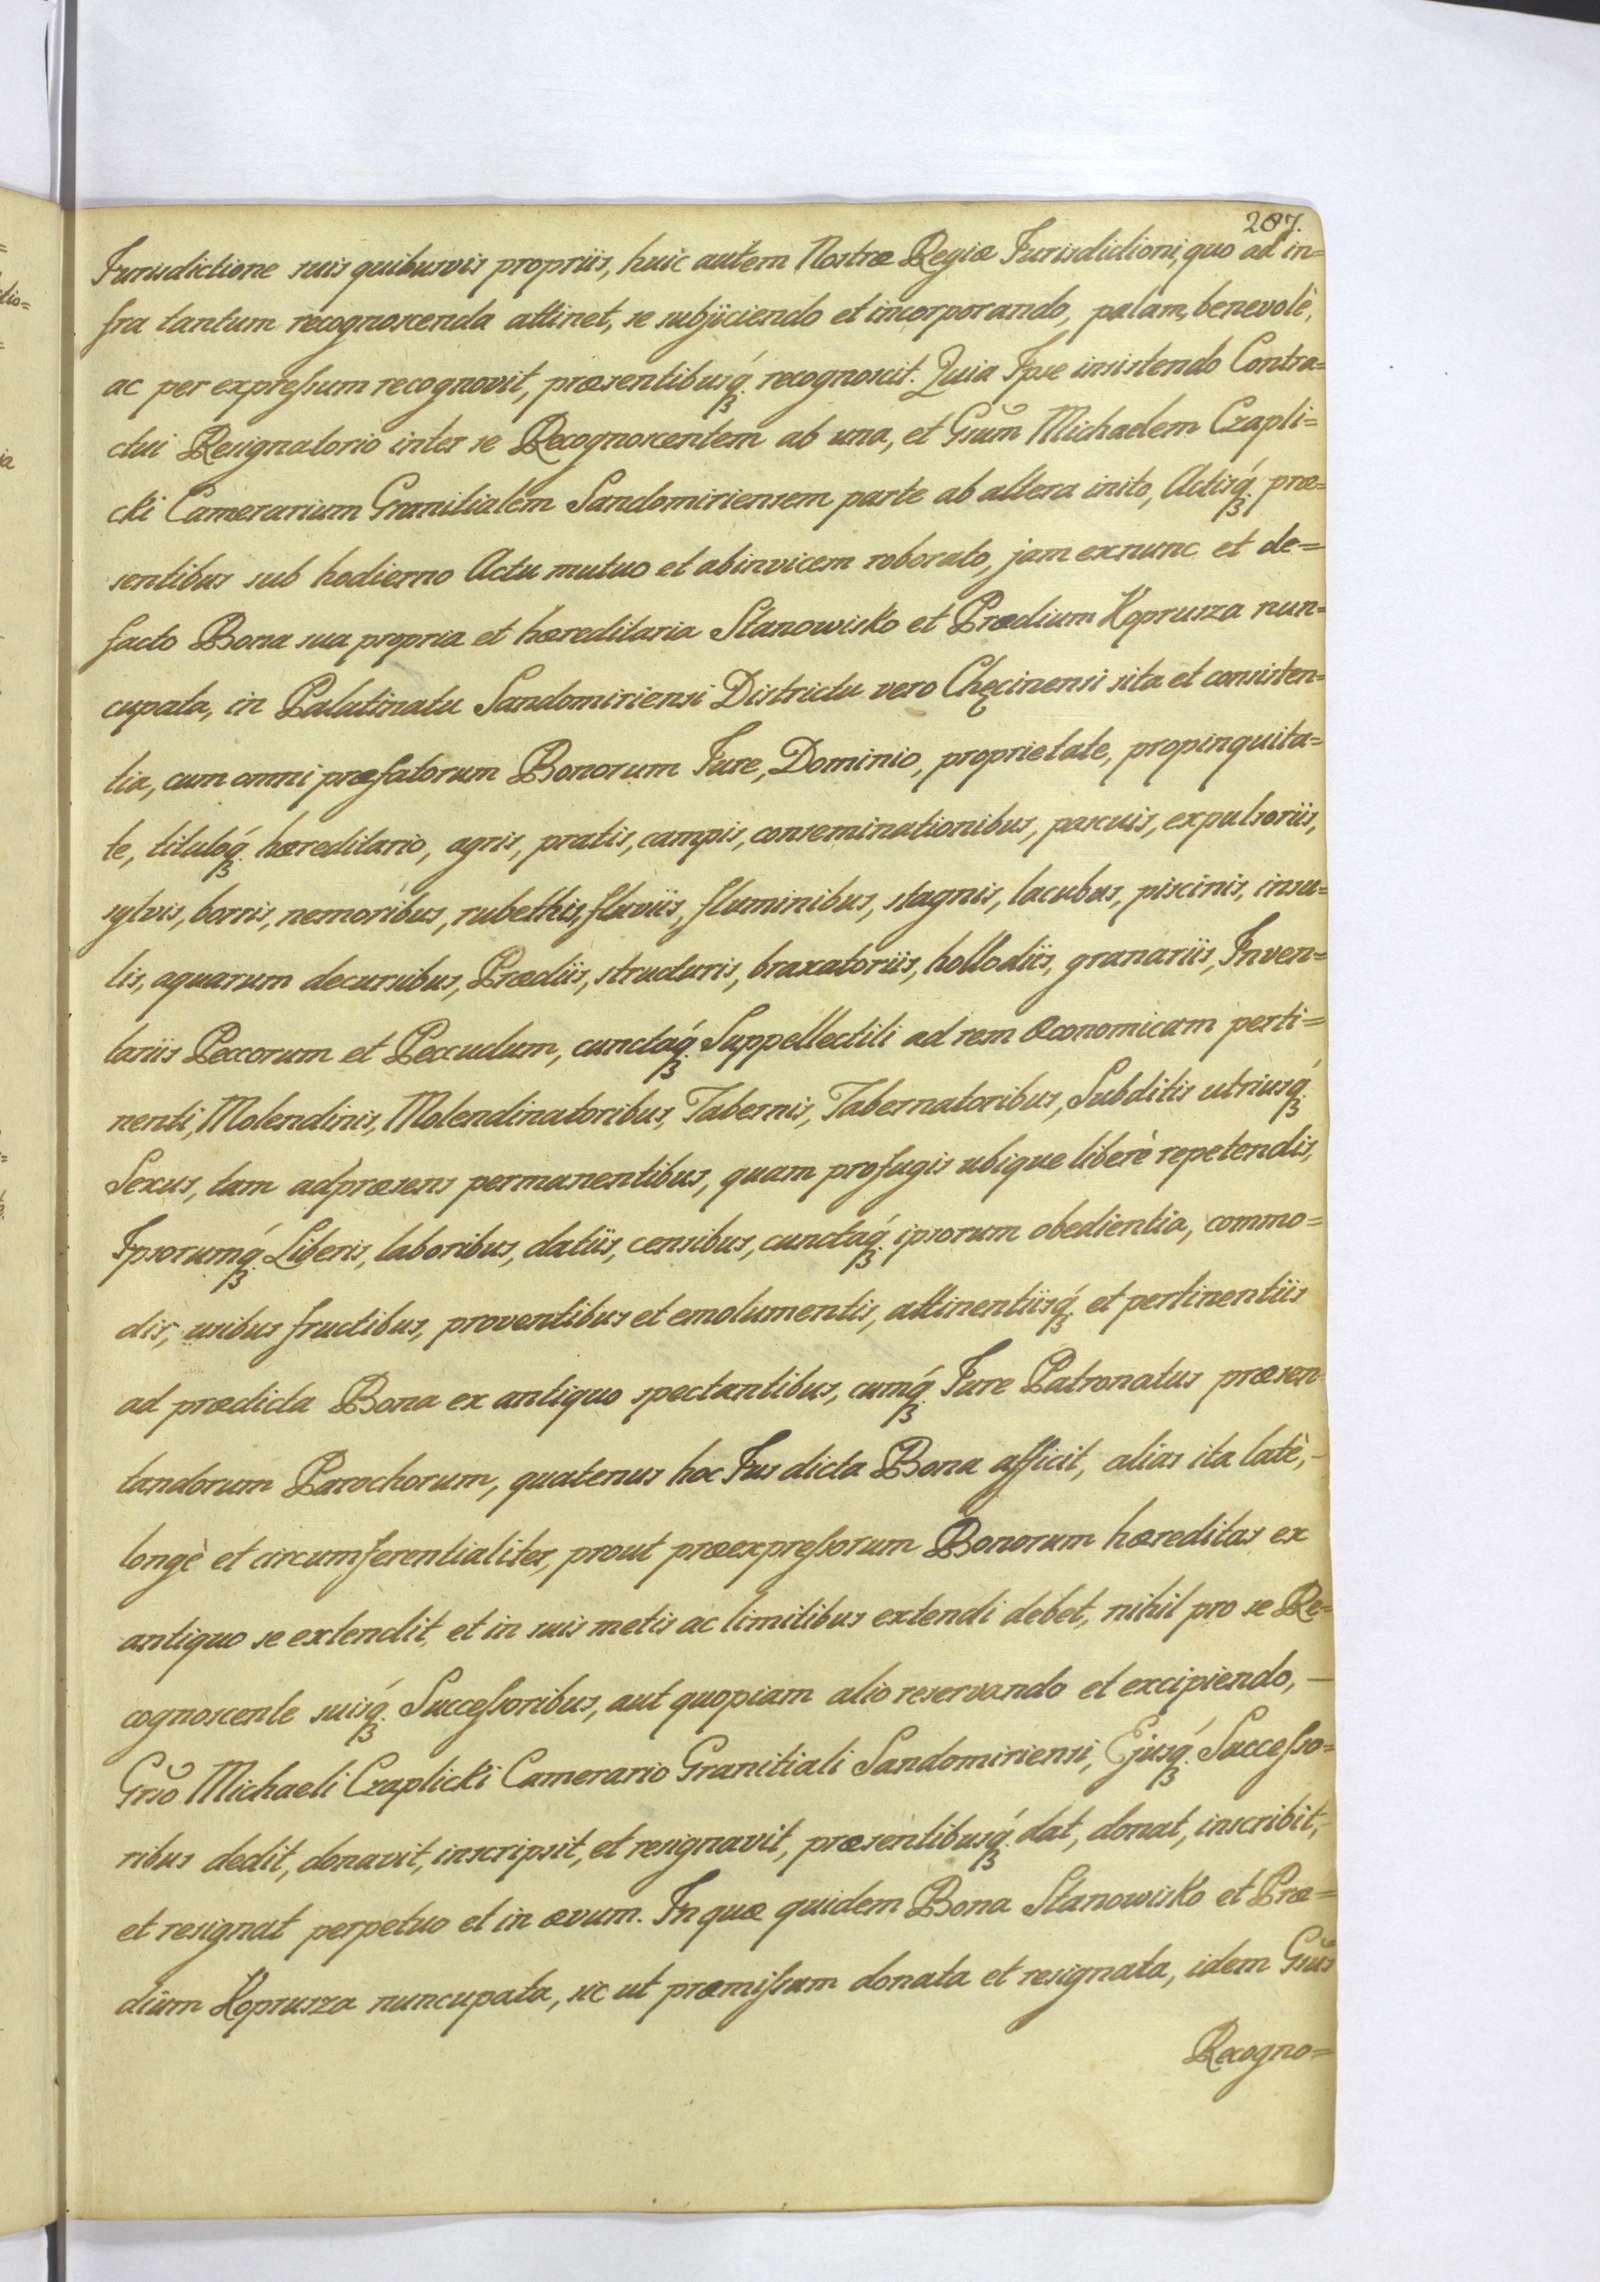 207.
Jurisdictione suis quibusvis propriis, huic autem Nostræ Regiæ Jurisdictioni, quo ad in=
fra tantum recognoscenda attinet, se subjiciendo et incorporando, palam, benevolè,
ac per expreſsum recognovit, præsentibusq́ꝫ recognoscit. Quia Ipse insistendo Contra=
ctui Resignatorio inter se Recognoscentem ab una, et Gsum Michaelem Czapli=
cki Camerarium Granitialem Sandomiriensem parte ab altera inito, Actisq́ꝫ præ=
sentibus sub hodierno Actu mutuo et abinvicem roborato, jam exnunc et de=
facto Bona sua propria et hæreditaria Stanowisko et Prædium Koprusza nun=
cupata, in Palatinatu Sandomiriensi Districtu vero Chęcinensi sita et consisten=
tia, cum omni præfatorum Bonorum Jure, Dominio, proprietate, propinquita=
te, tituloq́ꝫ hæreditario, agris, pratis, campis, conseminationibus, pascuis, expulsoriis,
sylvis, borris, nemoribus, rubethis, fluviis, fluminibus, stagnis, lacubus, piscinis, insu=
lis, aquarum decursibus, Prædiis, structuris, braxatoriis, hollodiis, granariis, Inven=
tariis Peccorum et Peccudum, cunctaq́ꝫ Suppellectili ad rem œconomicam perti=
nenti, Molendinis, Molendinatoribus, Tabernis, Tabernatoribus, Subditis utriusq́ꝫ
Sexus, tam adpræsens permanentibus, quam profugis ubique liberè repetendis,
Ipsorumq́ꝫ Liberis, laboribus, datiis, censibus, cunctaq́ꝫ ipsorum obedientia, commo=
dis, usibus fructibus, proventibus et emolumentis, attinentiisq́ꝫ et pertinentiis
ad prædicta Bona ex antiquo spectantibus, cumq́ꝫ Jure Patronatus præsen
tandorum Parochorum, quatenus hoc Jus dicta Bona afficit, alias ita latè,-
longè et circumferentialiter, prout præexpreſsorum Bonorum hæreditas ex
antiquo se extendit, et in suis metis ac limitibus extendi debet, nihil pro se Re=
cognoscente suisq́ꝫ Succeſsoribus, aut quopiam alio reservando et excipiendo, —
Gsso Michaeli Czaplicki Camerario Granitiali Sandomiriensi, Ejusq́ꝫ Succeſso=
ribus dedit, donavit, inscripsit, et resignavit, præsentibusq́ꝫ dat, donat, inscribit,-
et resignat perpetuo et in ævum. In quæ quidem Bona Stanowisko et Præ=
dium Koprusza nuncupata, sic ut præmiſsum donata et resignata, idem Gsus
Recogno=